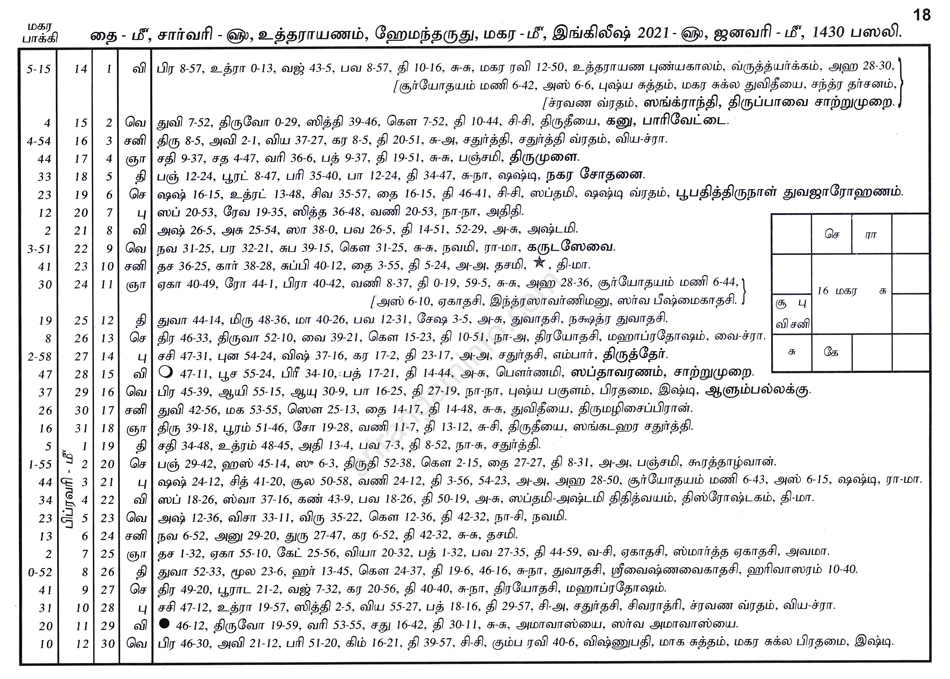 18
மகர பாக்கி
தை - மீ, சார்வரி - ௵, உத்தராயணம், ஹேமந்தருது, மகர - மீ, இங்கிலீஷ் 2021 - ௵, ஜனவரி - மீ, 1430 பஸலி.
5-15 14 1 வி பிர 8-57, உத்ரா 0-13, வஜ் 43-5, பவ 8-57, தி 10-16, சு-சு, மகர ரவி 12-50, உத்தராயண புண்யகாலம், வ்ருத்யர்க்கம், அஹ 28-30,
[சூர்யோதயம் மணி 6-42, அஸ் 6-6, புஷ்ய சுத்தம், மகர சுக்ல துவிதீயை, சந்த்ர தர்சனம்,
[ச்ரவண வ்ரதம், ஸங்க்ராந்தி, திருப்பாவை சாற்றுமுறை.
4 15 2 வெ துவி 7-52, திருவோ 0-29, ஸித்தி 39-46, கௌ 7-52, தி 10-44, சி-சி, திருதீயை, கனு, பாரிவேட்டை.
4-54 16 3 சனி திரு 8-5, அவி 2-1, விய 37-27, கர 8-5, தி 20-51, சு-அ, சதுர்த்தி, சதுர்த்தி வ்ரதம், விய-ச்ரா.
44 17 4 ஞா சதி 9-37, சத 4-47, வரி 36-6, பத் 9-37, தி 19-51, சு-சு, பஞ்சமி, திருமுளை.
33 18 5 தி பஞ் 12-24, பூரட் 8-47, பரி 35-40, பா 12-24, தி 34-47, சு-நா, ஷஷ்டி, நகர சோதனை.
23 19 6 செ ஷஷ் 16-15, உத்ரட் 13-48, சிவ 35-57, தை 16-15, தி 46-41, சி-சி, ஸப்தமி, ஷஷ்டி வ்ரதம், பூபதித்திருநாள் துவஜாரோஹணம்.
12 20 7 பு ஸப் 20-53, ரேவ 19-35, ஸித்த 36-48, வணி 20-53, நா-நா, அதிதி.
2 21 8 வி அஷ் 26-5, அசு 25-54, ஸா 38-0, பவ 26-5, தி 14-51, 52-29, அ-சு, அஷ்டமி.
3-51 22 9 வெ நவ 31-25, பர 32-21, சுப 39-15, கௌ 31-25, சு-சு, நவமி, ரா-மா, கருடஸேவை.
41 23 10 சனி தச 36-25, கார் 38-28, சுப்பி 40-12, தை 3-55, தி 5-24, அ-அ, தசமி, ★, தி-மா.
30 24 11 ஞா ஏகா 40-49, ரோ 44-1, பிரா 40-42, வணி 8-37, தி 0-19, 59-5, சு-சு, அஹ 28-36, சூர்யோதயம் மணி 6-44,
[அஸ் 6-10, ஏகாதசி, இந்த்ரஸாவர்ணிமனு, ஸர்வ பீஷ்மைகாதசி.
19 25 12 தி துவா 44-14, மிரு 48-36, மா 40-26, பவ 12-31, சேஷ 3-5, அ-சு, துவாதசி, நக்ஷத்ர துவாதசி.
8 26 13 செ திர 46-33, திருவா 52-10, வை 39-21, கௌ 15-23, தி 10-51, நா-அ, திரயோதசி, மஹாப்ரதோஷம், வை-ச்ரா.
2-58 27 14 பு சசி 47-31, புன 54-24, விஷ் 37-16, கர 17-2, தி 23-17, அ-அ, சதுர்தசி, எம்பார், திருத்தேர்.
47 28 15 வி ○ 47-11, பூச 55-24, பிரீ 34-10, பத் 17-21, தி 14-44, அ-சு, பௌர்ணமி, ஸப்தாவரணம், சாற்றுமுறை.
37 29 16 வெ பிர 45-39, ஆயி 55-15, ஆயு 30-9, பா 16-25, தி 27-19, நா-நா, புஷ்ய பகுளம், பிரதமை, இஷ்டி, ஆளும்பல்லக்கு.
26 30 17 சனி துவி 42-56, மக 53-55, ஸௌ 25-13, தை 14-17, தி 14-48, சு-சு, துவிதீயை, திருமழிசைப்பிரான்.
16 31 18 ஞா திரு 39-18, பூரம் 51-46, சோ 19-28, வணி 11-7, தி 13-12, சு-சி, திருதீயை, ஸங்கடஹர சதுர்த்தி.
5 1 19 தி சதி 34-48, உத்ரம் 48-45, அதி 13-4, பவ 7-3, தி 8-52, நா-சு, சதுர்த்தி.
பிப்ரவரி - மீ
1-55 2 20 செ பஞ் 29-42, ஹஸ் 45-14, ஸு 6-3, திருதி 52-38, கௌ 2-15, தை 27-27, தி 8-31, அ-அ, பஞ்சமி, கூரத்தாழ்வான்.
44 3 21 பு ஷஷ் 24-12, சித் 41-20, சூல 50-58, வணி 24-12, தி 3-56, 54-23, அ-அ, அஹ 28-50, சூர்யோதயம் மணி 6-43, அஸ் 6-15, ஷஷ்டி, ரா-மா.
34 4 22 வி ஸப் 18-26, ஸ்வா 37-16, கண் 43-9, பவ 18-26, தி 50-19, அ-சு, ஸப்தமி-அஷ்டமி திதித்வயம், திஸ்ரோஷ்டகம், தி-மா.
23 5 23 வெ அஷ் 12-36, விசா 33-11, விரு 35-22, கௌ 12-36, தி 42-32, நா-சி, நவமி.
13 6 24 சனி நவ 6-52, அனு 29-20, துரு 27-47, கர 6-52, தி 42-32, சு-சு, தசமி.
2 7 25 ஞா தச 1-32, ஏகா 55-10, கேட் 25-56, வியா 20-32, பத் 1-32, பவ 27-35, தி 44-59, வ-சி, ஏகாதசி, ஸ்மார்த்த ஏகாதசி, அவமா.
0-52 8 26 தி துவா 52-33, மூல 23-6, ஹர் 13-45, கௌ 24-37, தி 19-6, 46-16, சு-நா, துவாதசி, ஸ்ரீவைஷ்ணவைகாதசி, ஹரிவாஸரம் 10-40.
41 9 27 செ திர 49-20, பூராட 21-2, வஜ் 7-32, கர 20-56, தி 40-40, சு-நா, திரயோதசி, மஹாப்ரதோஷம்.
31 10 28 பு சசி 47-12, உத்ரா 19-57, ஸித்தி 2-5, விய 55-27, பத் 18-16, தி 29-57, சி-அ, சதுர்தசி, சிவராத்ரி, ச்ரவண வ்ரதம், விய-ச்ரா.
20 11 29 வி ● 46-12, திருவோ 19-59, வரி 53-55, சது 16-42, தி 30-11, சு-சு, அமாவாஸ்யை, ஸர்வ அமாவாஸ்யை.
10 12 30 வெ பிர 46-30, அவி 21-12, பரி 51-20, கிம் 16-21, தி 39-57, சி-சி, கும்ப ரவி 40-6, விஷ்ணுபதி, மாக சுத்தம், மகர சுக்ல பிரதமை, இஷ்டி.
செ ரா
16 மகர சு
சூ பு
வி சனி
சு கே